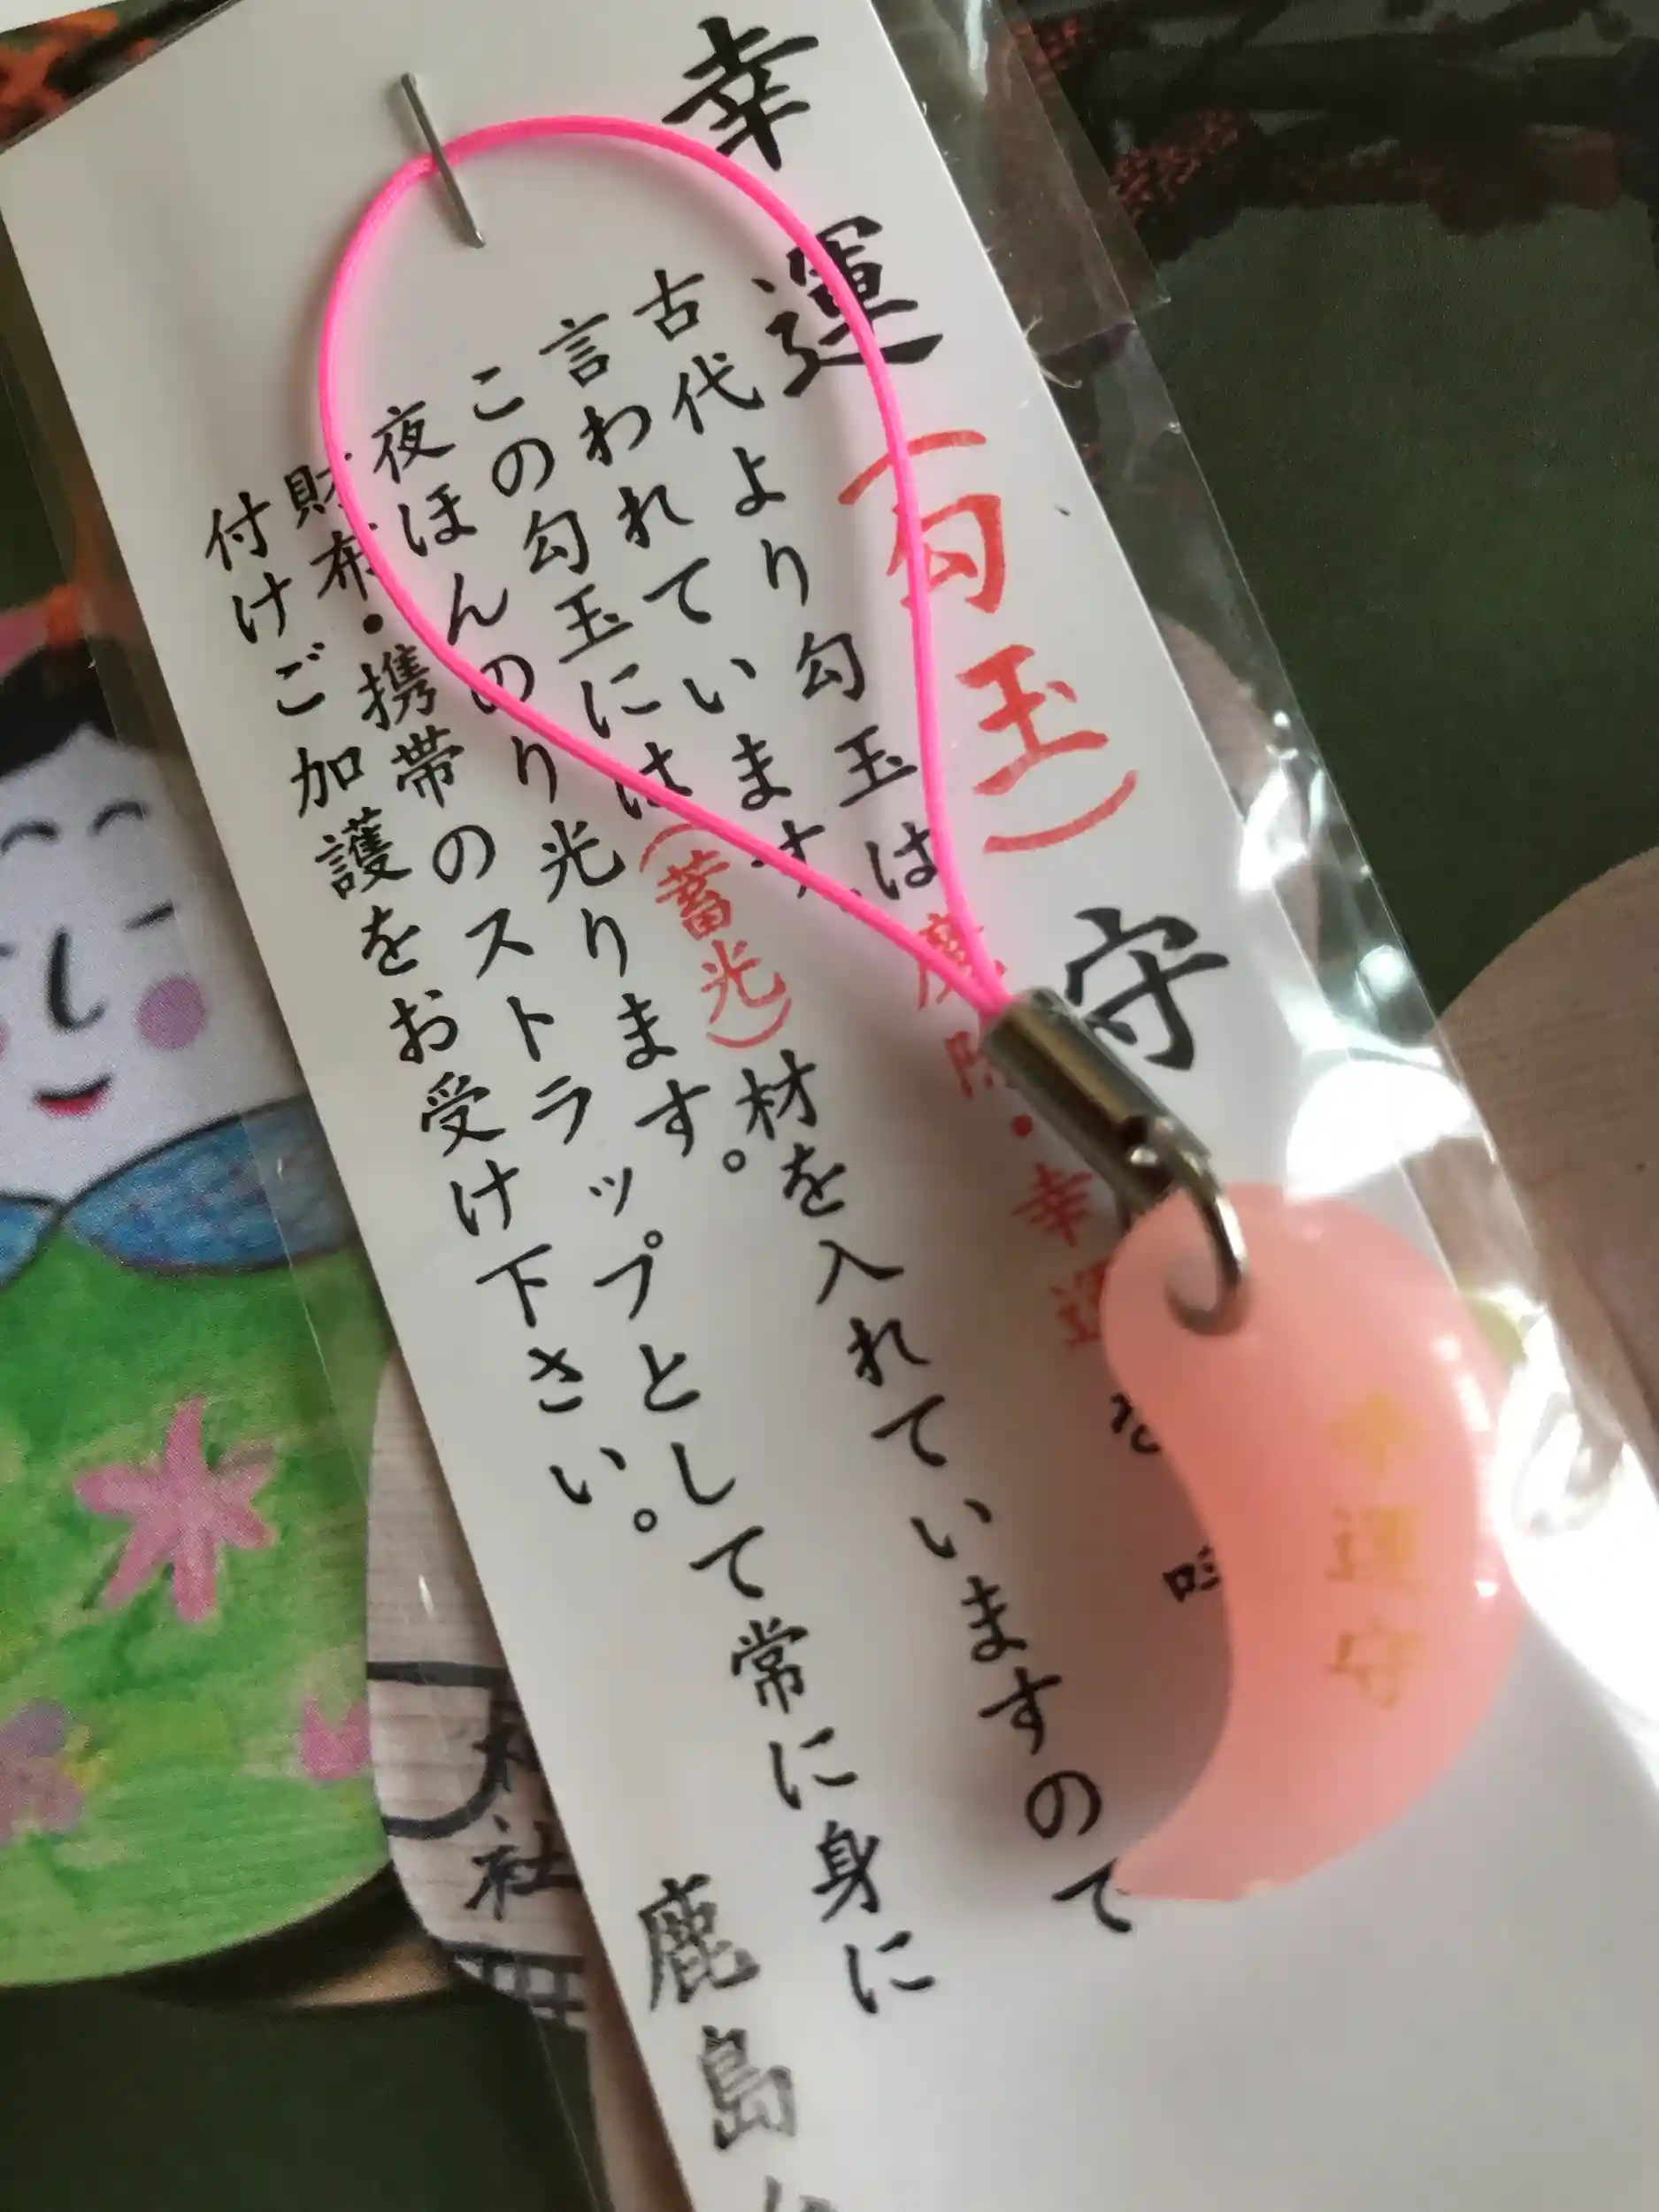 幸運(勾玉)守
古代より勾玉は魔除・幸運を
言われています。
この勾玉には(蓄光)材を入れていますので
夜ほんのり光ります。
財布・携帯のストラップとして常に身に
付けご加護をお受け下さい。
鹿島
幸運守
社